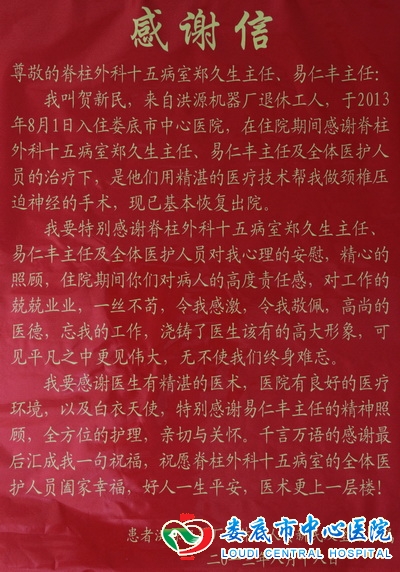 感谢信
尊敬的脊柱外科十五病室郑久生主任、易仁丰主任：
我叫贺新民，来自洪源机器厂退休工人，于2013
年8月1日入住娄底市中心医院，在住院期间感谢脊柱
外科十五病室郑久生主任、易仁丰主任及全体医护人
员的治疗下，是他们用精湛的医疗技术帮我做颈椎压
迫神经的手术，现已基本恢复出院。
我要特别感谢脊柱外科十五病室郑久生主任、
易仁丰主任及全体医护人员对我心理的安慰，精心的
照顾，住院期间你们对病人的高度责任感，对工作的
兢兢业业，一丝不苟，令我感激，令我敬佩，高尚的
医德，忘我的工作，浇铸了医生该有的高大形象，可
见平凡之中更见伟大，无不使我们终身难忘。
我要感谢医生有精湛的医术，医院有良好的医疗
环境，以及白衣天使，特别感谢易仁丰主任的精神照
顾，全方位的护理，亲切与关怀。千言万语的感谢最
后汇成我一句祝福，祝愿脊柱外科十五病室的全体医
护人员阖家幸福，好人一生平安，医术更上一层楼！
患者
娄底市中心医院
LOUDI CENTRAL HOSPITAL